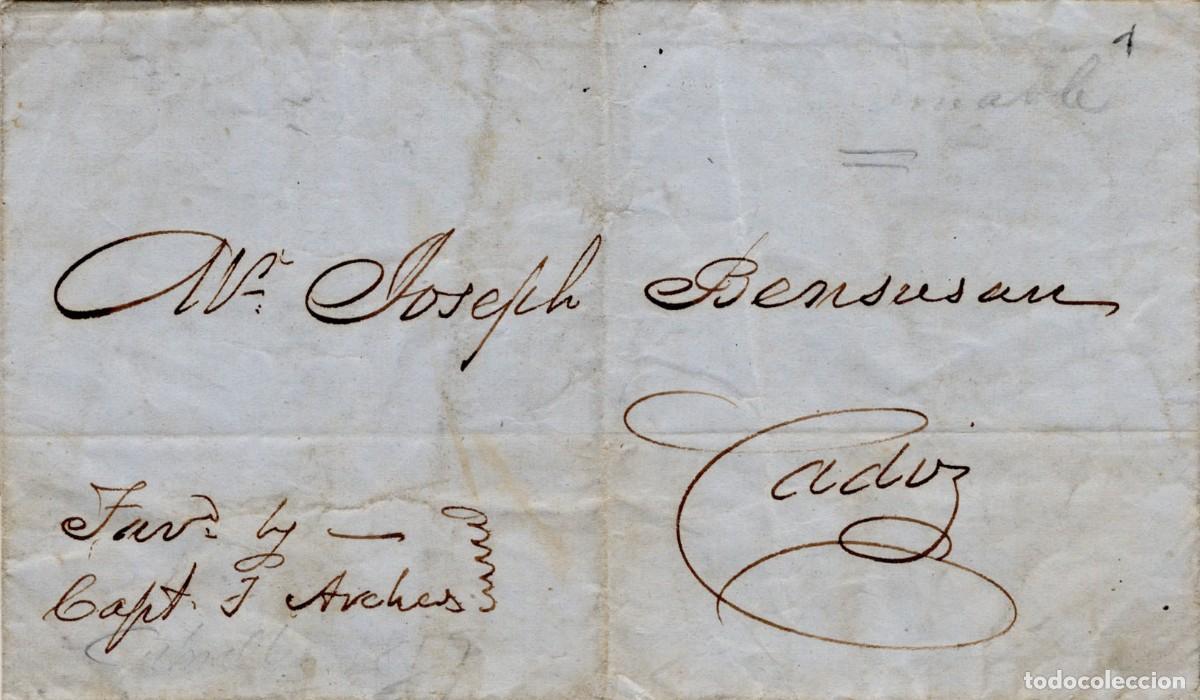 Mr. Joseph Bensusan
Cadiz
Favd. by —
Capt. J Archer
todocoleccion